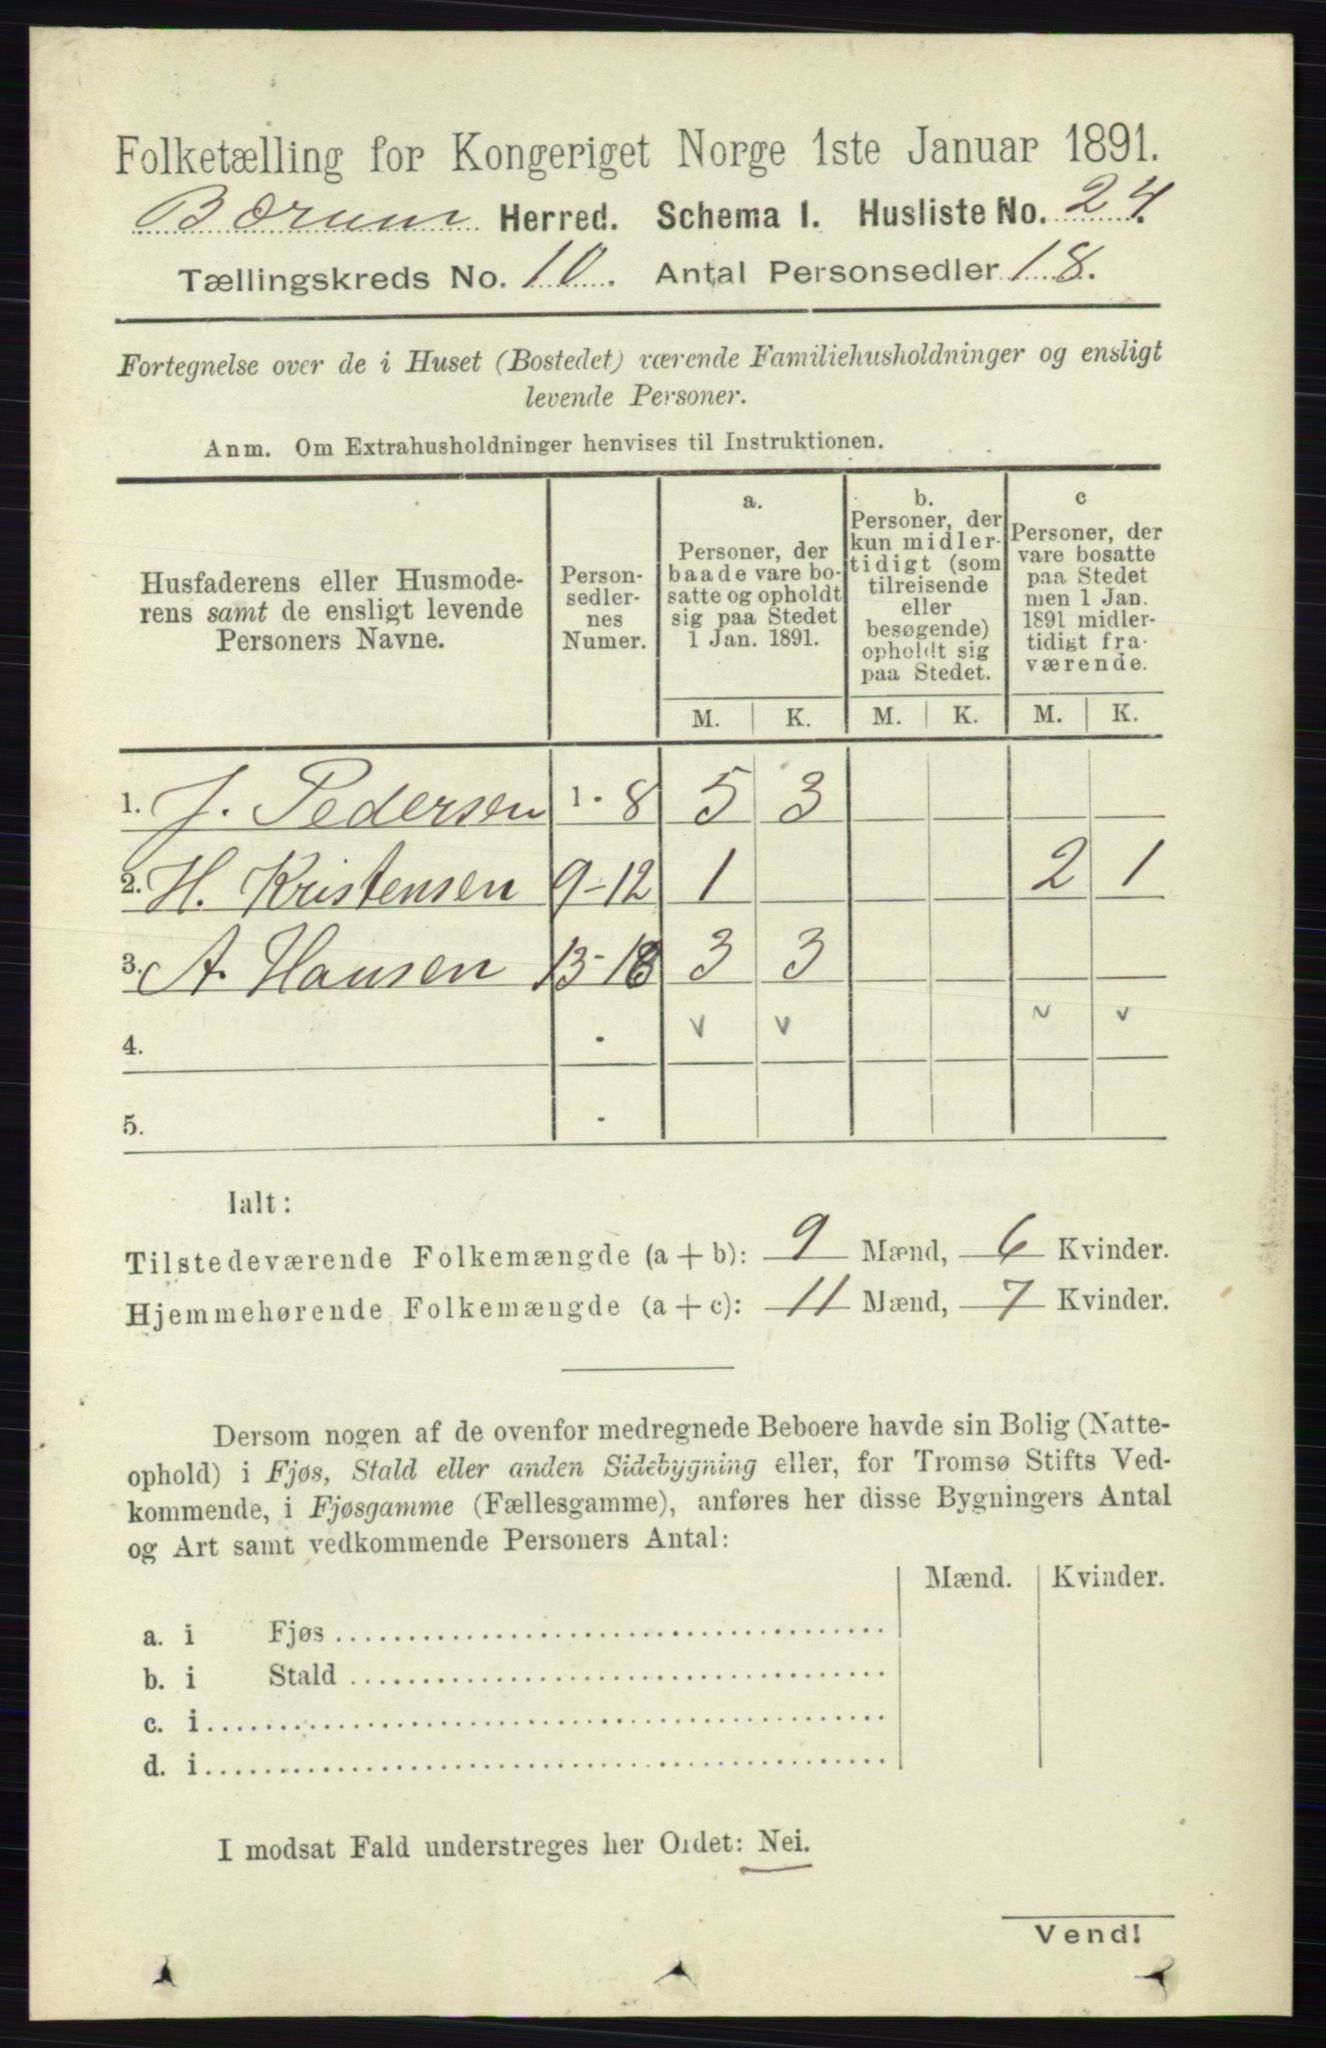 Folketælling for Kongeriget Norge 1ste Januar 1891.
Bærum Herred. Schema 1. Husliste No. 24.
Tællingskreds No. 10. Antal Personsedler 18.
Fortegnelse over de i Huset (Bostedet) værende Familiehusholdninger og ensligt
levende Personer.
Anm. Om Extrahusholdninger henvises til Instruktionen.
Husfaderens eller Husmode-
rens samt de ensligt levende
Personers Navne.
Person-
sedler-
nes
Numer.
a.
Personer, der
baade vare bo-
satte og opholdt
sig paa Stedet
1 Jan. 1891.
b.
Personer, der
kun midler-
tidigt (som
tilreisende
eller
besøgende)
opholdt sig
paa Stedet.
c
Personer, der
vare bosatte
paa Stedet
men 1 Jan.
1891 midler-
tidigt fra-
værende.
M. K. M. K. M. K.
1. J. Pedersen 1 - 8 5 3
2. H. Kristensen 9-12 1 2 1
3. A. Hansen 13-18 3 3
4. - v v v v
5. -
Ialt:
Tilstedeværende Folkemængde (a + b): 9 Mænd, 6 Kvinder.
Hjemmehørende Folkemængde (a + c): 11 Mænd, 7 Kvinder.
Dersom nogen af de ovenfor medregnede Beboere havde sin Bolig (Natte-
ophold) i Fjøs, Stald eller anden Sidebygning eller, for Tromsø Stifts Ved-
kommende, i Fjøsgamme (Fællesgamme), anføres her disse Bygningers Antal
og Art samt vedkommende Personers Antal:
Mænd. Kvinder.
a. i Fjøs
b. i Stald
c. i
d. i
I modsat Fald understreges her Ordet: Nei.
Vend!